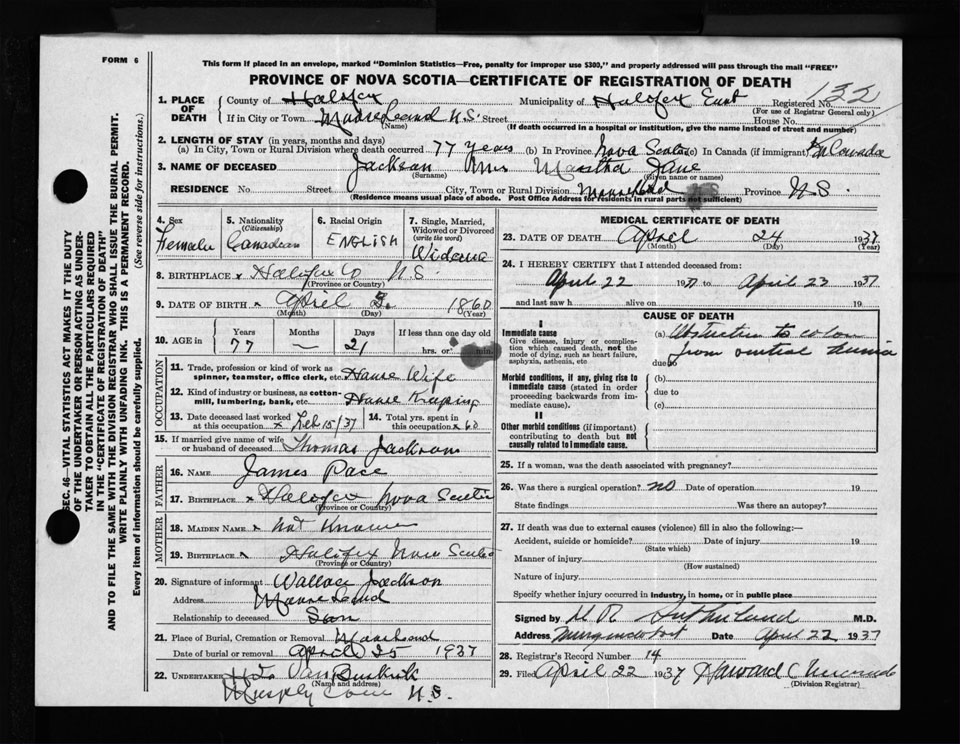 FORM 6
This form if placed in an envelope, marked "Dominion Statistics—Free, penalty for improper use $300," and properly addressed will pass through the mail "FREE"
PROVINCE OF NOVA SCOTIA—CERTIFICATE OF REGISTRATION OF DEATH
SEC. 46—VITAL STATISTICS ACT MAKES IT THE DUTY
OF THE UNDERTAKER OR PERSON ACTING AS UNDER-
TAKER TO OBTAIN ALL THE PARTICULARS REQUIRED
IN THE "CERTIFICATE OF REGISTRATION OF DEATH"
AND TO FILE THE SAME WITH THE DIVISION REGISTRAR WHO SHALL ISSUE THE BURIAL PERMIT.
WRITE PLAINLY WITH UNFADING INK. THIS IS A PERMANENT RECORD.
Every item of information should be carefully supplied. (See reverse side for instructions.)
1. PLACE OF DEATH County of Halifax Municipality of Halifax East Registered No. 132
(For use of Registrar General only)
If in City or Town N.S. Street House No.
(Name) (If death occurred in a hospital or institution, give the name instead of street and number)
2. LENGTH OF STAY (in years, months and days)
(a) In City, Town or Rural Division where death occurred 77 years (b) In Province Nova Scotia (c) In Canada (if immigrant) Canada
3. NAME OF DECEASED Jackson Mrs Martha Jane
(Surname) (Given name or names)
RESIDENCE No. Street City, Town or Rural Division Province N.S.
(Residence means usual place of abode. Post Office Address for residents in rural parts not sufficient)
4. Sex Female
5. Nationality (Citizenship) Canadian
6. Racial Origin ENGLISH
7. Single, Married, Widowed or Divorced (write the word)
8. BIRTHPLACE x Halifax Co N.S.
(Province or Country)
9. DATE OF BIRTH x April 3 1860
(Month) (Day) (Year)
10. AGE in Years 77 Months — Days 21 If less than one day old hrs. or min.
OCCUPATION
11. Trade, profession or kind of work as spinner, teamster, office clerk, etc. House Wife
12. Kind of industry or business, as cotton-mill, lumbering, bank, etc. House Keeping
13. Date deceased last worked at this occupation x Feb 15/37
14. Total yrs. spent in this occupation x 60
15. If married give name of wife or husband of deceased Thomas Jackson
FATHER
16. NAME James Pace
17. BIRTHPLACE x Halifax Nova Scotia
(Province or Country)
MOTHER
18. MAIDEN NAME x Not Known
19. BIRTHPLACE x Halifax Nova Scotia
(Province or Country)
20. Signature of informant Wallace Jackson
Address
Relationship to deceased Son
21. Place of Burial, Cremation or Removal
Date of burial or removal April 25 1937
22. UNDERTAKER Van Buskirk
(Name and address)
N.S.
MEDICAL CERTIFICATE OF DEATH
23. DATE OF DEATH April 24 1937
(Month) (Day) (Year)
24. I HEREBY CERTIFY that I attended deceased from:
April 22 1937 to April 23 1937
and last saw h alive on 19
CAUSE OF DEATH
I
Immediate cause
Give disease, injury or complication which caused death, not the mode of dying, such as heart failure, asphyxia, asthenia, etc.
(a) Obstruction to colon
from ventral hernia
due to
Morbid conditions, if any, giving rise to immediate cause (stated in order proceeding backwards from immediate cause).
(b)
due to
(c)
II
Other morbid conditions (if important) contributing to death but not causally related to immediate cause.
25. If a woman, was the death associated with pregnancy?
26. Was there a surgical operation? NO Date of operation 19
State findings Was there an autopsy?
27. If death was due to external causes (violence) fill in also the following:—
Accident, suicide or homicide? Date of injury 19
(State which)
Manner of injury
(How sustained)
Nature of injury
Specify whether injury occurred in industry, in home, or in public place
Signed by Sutherland M.D.
Address Date April 22 1937
28. Registrar's Record Number 14
29. Filed April 22 1937
(Division Registrar)